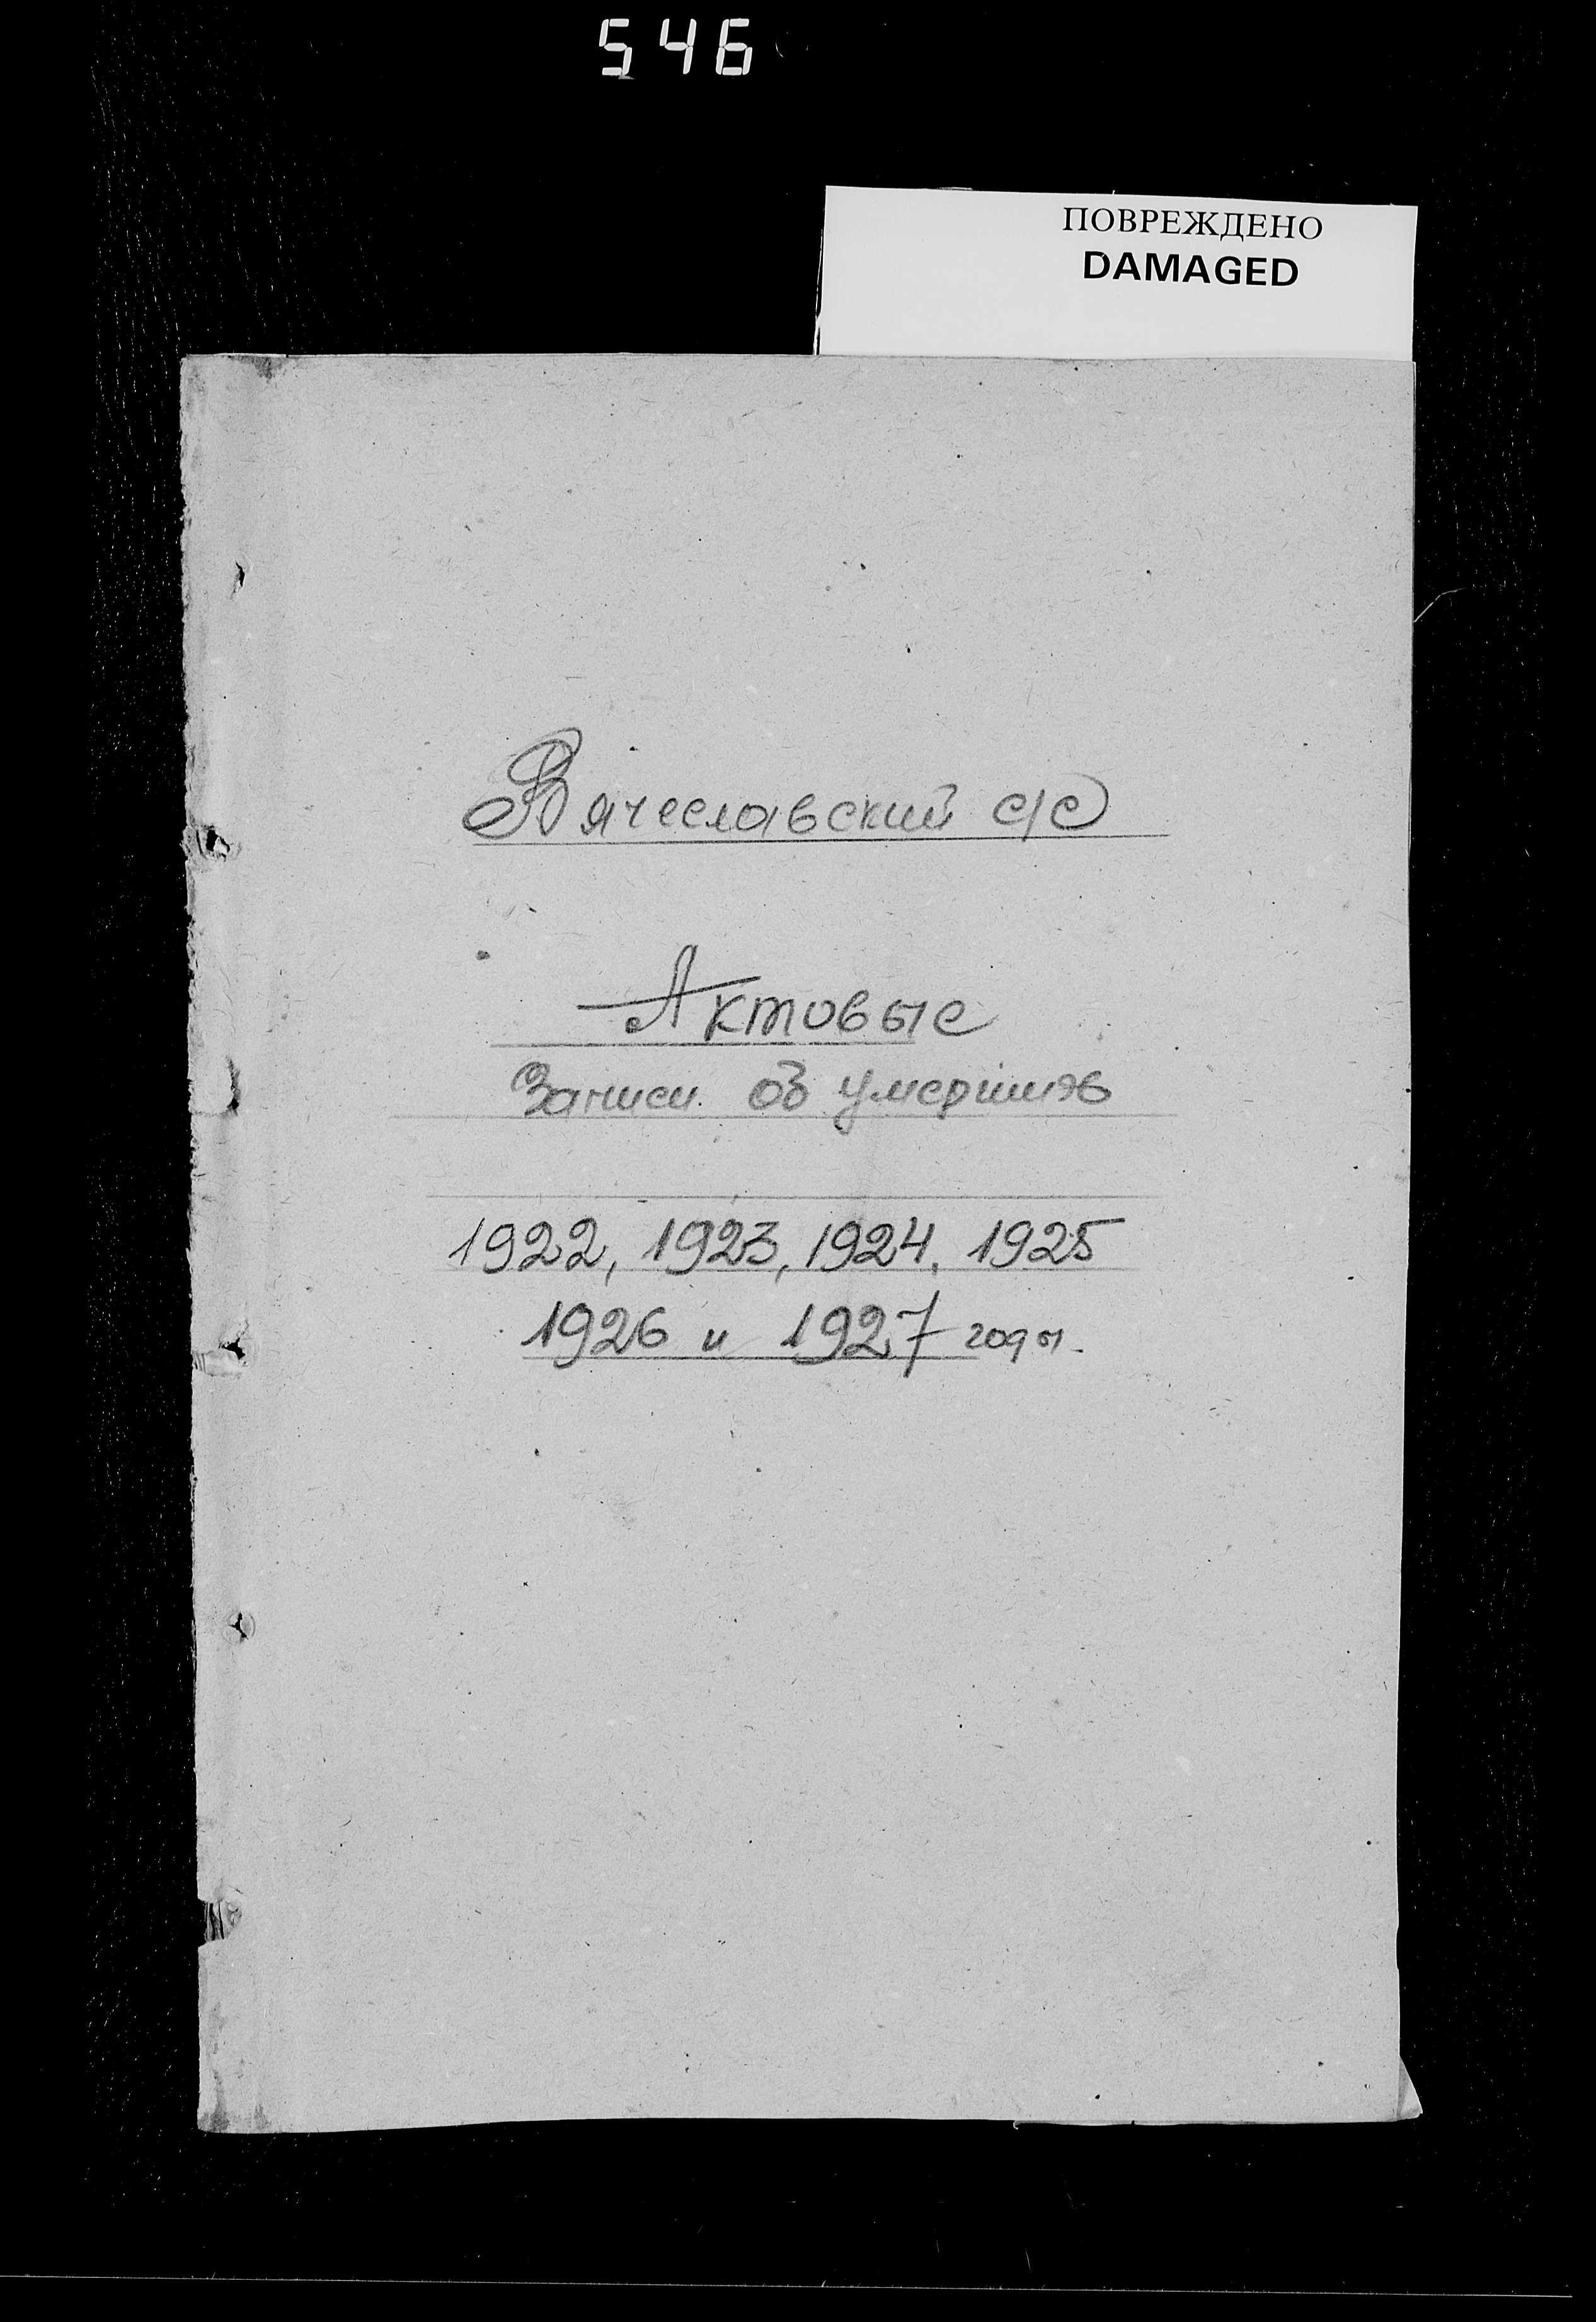 546
ПОВРЕЖДЕНО
DAMAGED
Вячеславский с/с
Актовые
Записи об умерших
1922, 1923, 1924, 1925
1926 и 1927 годы.